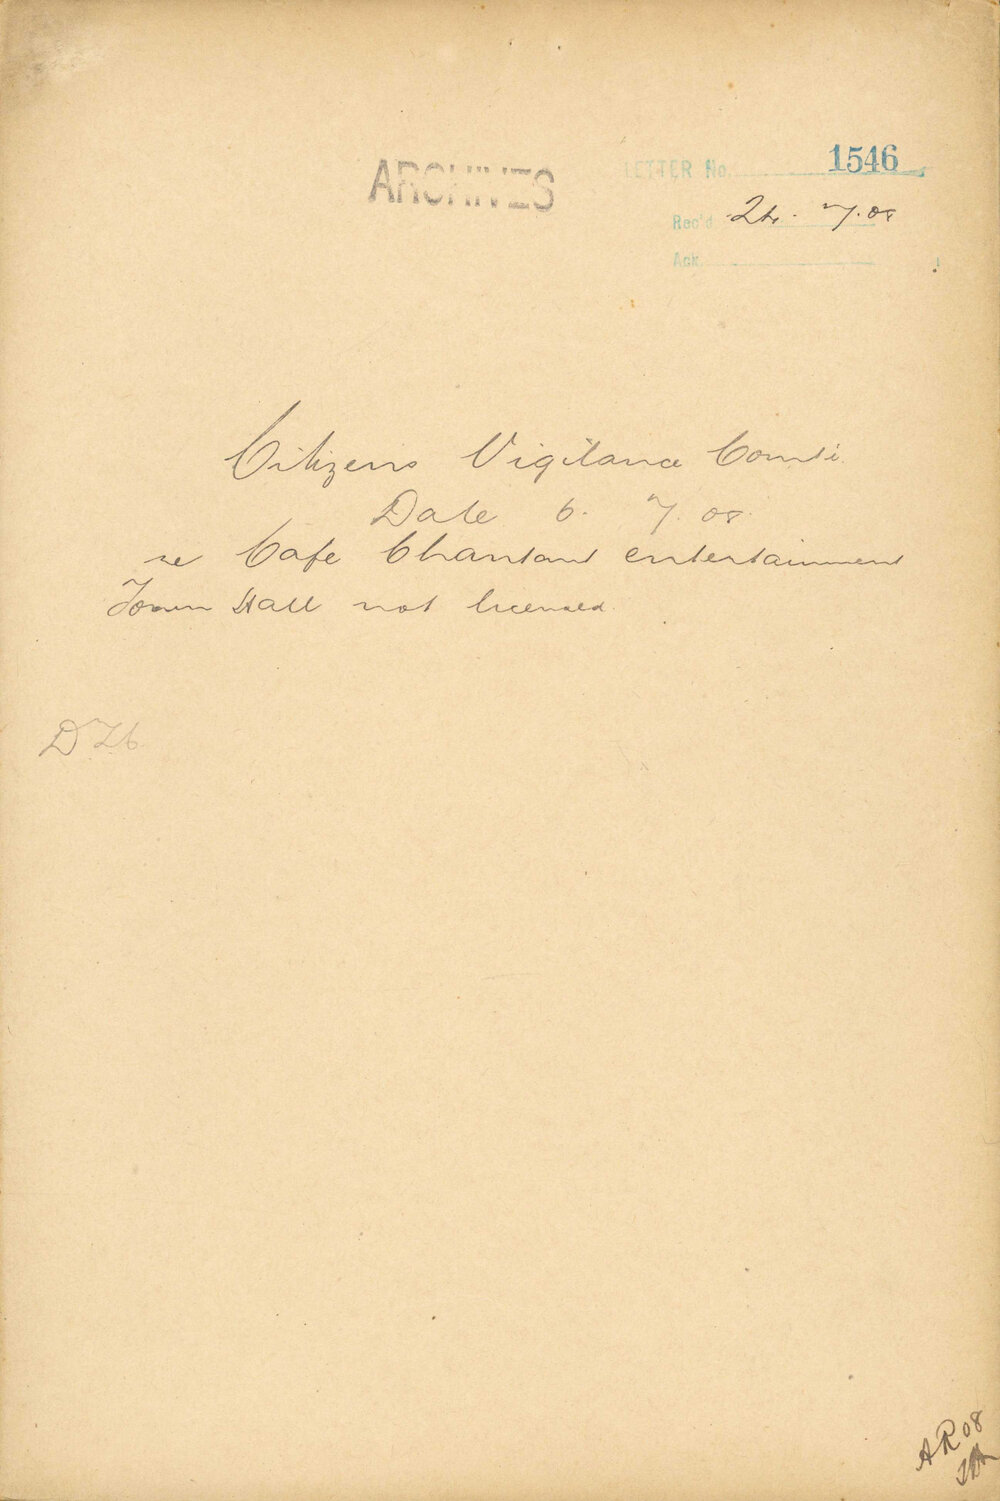 ARCHIVES
LETTER No. 1546
Rec'd 24. 7. 08
Ack.
Citizens Vigilance Comti
Date 6. 7. 08.
re Cafe Chantant entertainment
Town Hall not licensed.
AR 08